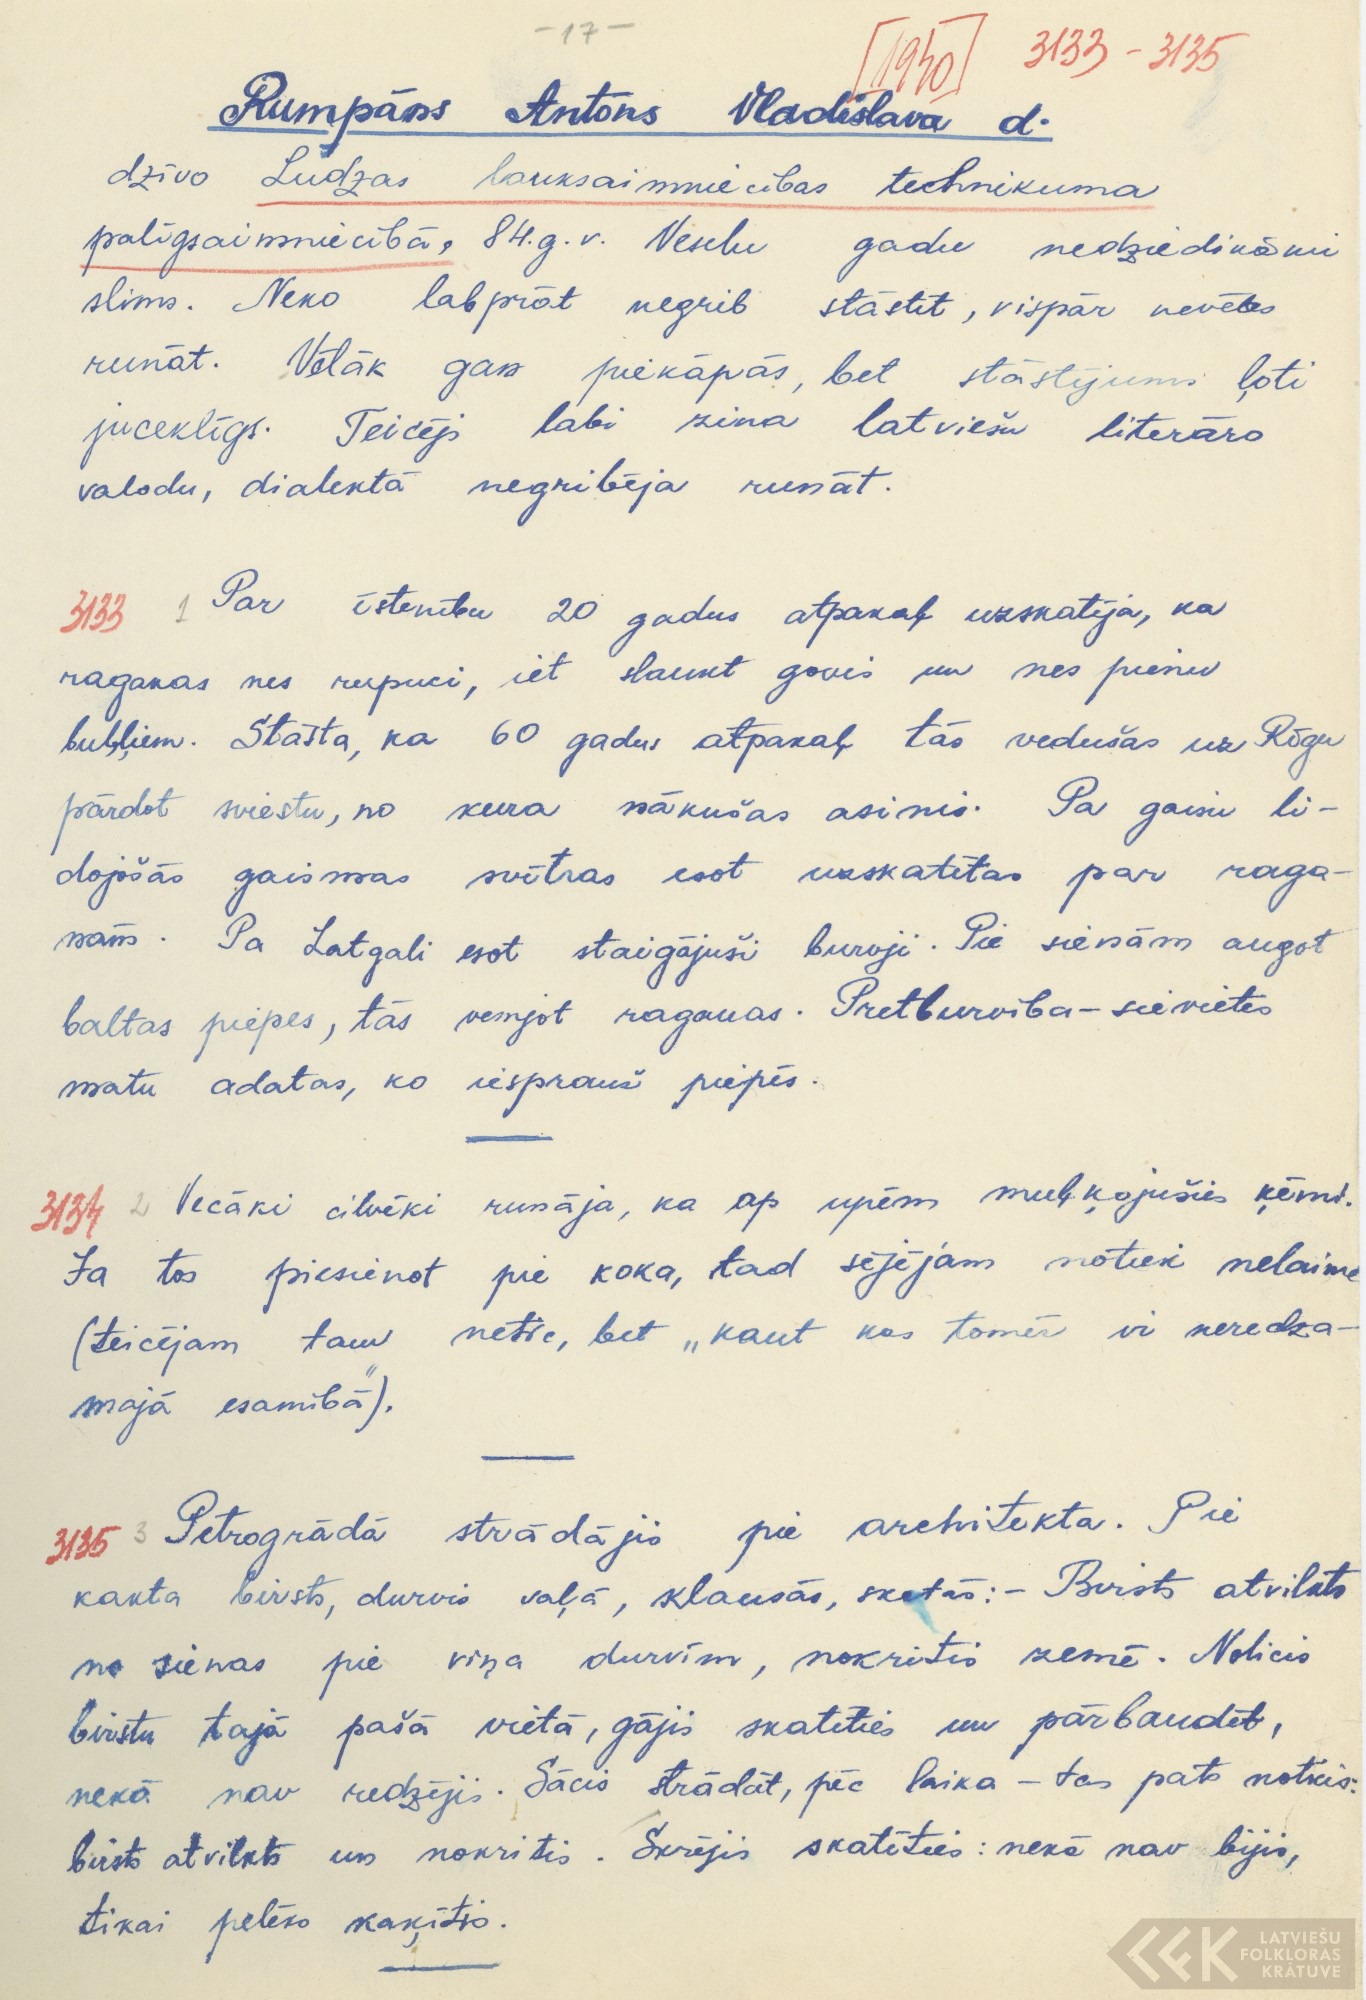 -17-
[1940] 3133-3135
Rumpāns Antons Vladislava d.
dzīvo Ludzas lauksaimniecības technikuma
palīgsaimniecībā, 84.g.v. Veselu gadu nedziedināmi
slims. Neko labprāt negrib stāstīt, vispār nevēlas
runāt. Vēlāk gan piekāpās, bet stāstījums ļoti
juceklīgs. Teicējs labi zina latviešu literāro
valodu, dialektā negribēja runāt.
3133 1 Par īstenību 20 gadus atpakaļ uzskatīja, ka
raganas nes rupuci, iet slaukt govis un nes pienu
buļļiem. Stāsta, ka 60 gadus atpakaļ tās vedušas uz Rīgu
pārdot sviestu, no kura nākušas asinis. Pa gaisu li-
dojošās gaismas svītras esot uzskatītas par raga-
nām. Pa Latgali esot staigājuši burvji. Pie sienām augot
baltas piepes, tās vemjot raganas. Pretburvība - sievietes
matu adatas, ko iesprauž piepēs.
3134 2 Vecāki cilvēki runāja, ka ap upēm muļķojušies ķēmi.
Ja tos piesienot pie koka, tad sējējam notiek nelaime
(teicējam tam netic, bet „kaut kas tomēr ir neredza-
majā esamībā").
3135 3 Petrogrādā strādājis pie architekta. Pie
kakta birsts, durvis vaļā, klausās, skatās: - Birsts atvilkts
no sienas pie viņa durvīm, nokritis zemē. Nolicis
birstu tajā pašā vietā, gājis skatīties un pārbaudīt,
nekā nav redzējis. Sācis strādāt, pēc laika - tas pats noticis:
birsts atvilkts un nokritis. Skrējis skatīties: nekā nav bijis,
tikai pelēks kaķītis.
LATVIEŠU
FOLKLORAS
KRĀTUVE